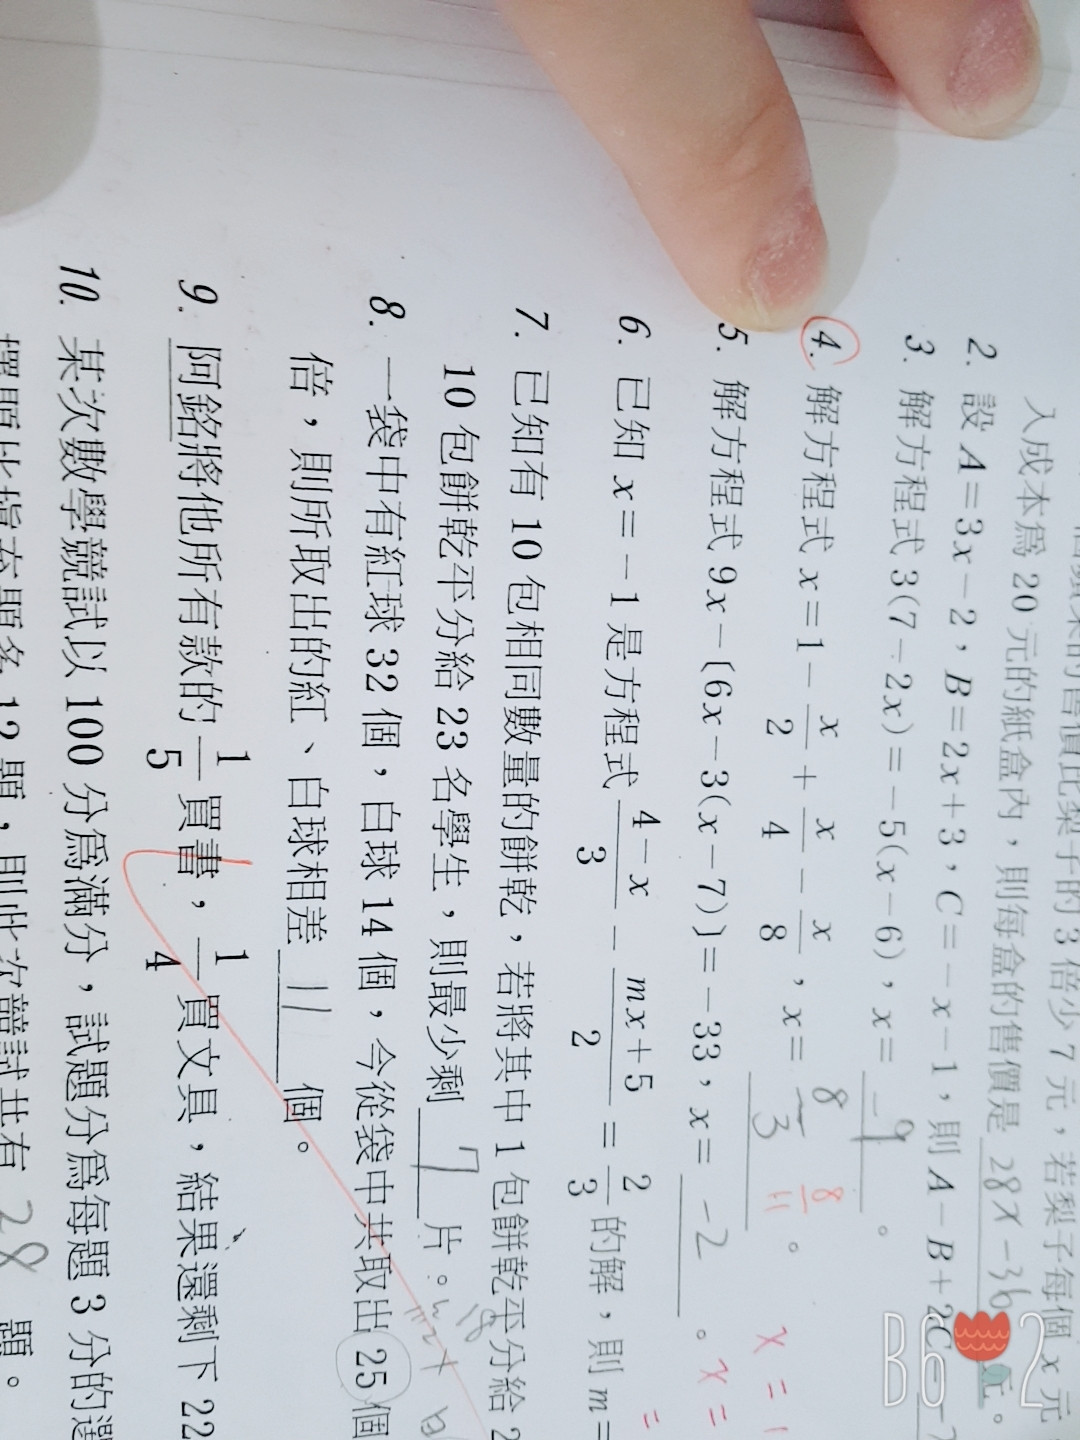 入成本為 20 元的紙盒內，則每盒的售價是 28x-36 元。
2. 設 A=3x-2，B=2x+3，C=-x-1，則 A-B+2C
3. 解方程式 3(7-2x)=-5(x-6)，x= -9 。
4. 解方程式 x=1-x/2+x/4-x/8，x= 8/3 8/11 。
x=1
5. 解方程式 9x-[6x-3(x-7)]=-33，x= -2 。
x=
6. 已知 x=-1 是方程式 (4-x)/3-(mx+5)/2=2/3 的解，則 m=
7. 已知有 10 包相同數量的餅乾，若將其中 1 包餅乾平分給 2
10 包餅乾平分給 23 名學生，則最少剩 7 片。
8. 一袋中有紅球 32 個，白球 14 個，今從袋中共取出 25 個
倍，則所取出的紅、白球相差 11 個。
9. 阿銘將他所有款的 1/5 買書，1/4 買文具，結果還剩下 22
10. 某次數學競試以 100 分為滿分，試題分為每題 3 分的選
12 題，則此次競試共有 28 題。
B612